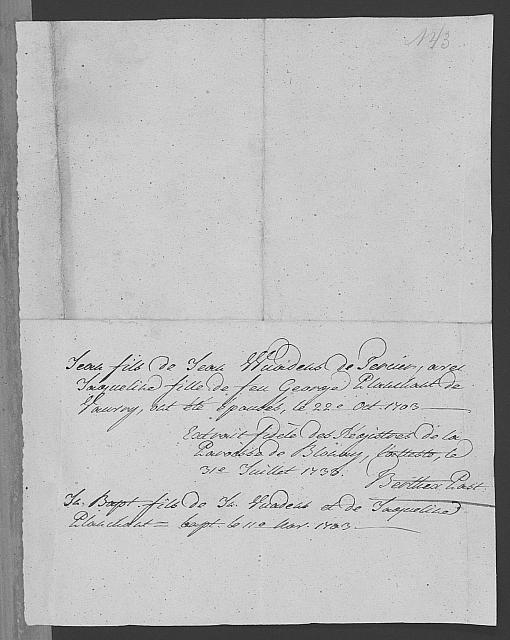 143
Jean fils de Jean Wuadens de, avec
Jaqueline fille de feu George Planchant de
ont été épousés, le 22e Oct. 1703
Extrait fidele des Régistres de la
Paroisse de Blonay, le
31e Juillet 1738. Past.
Jn. Bapt. fils de Jn. Vuadens et de Jaqueline
Planchant = bapt. le 11e Nov. 1703.